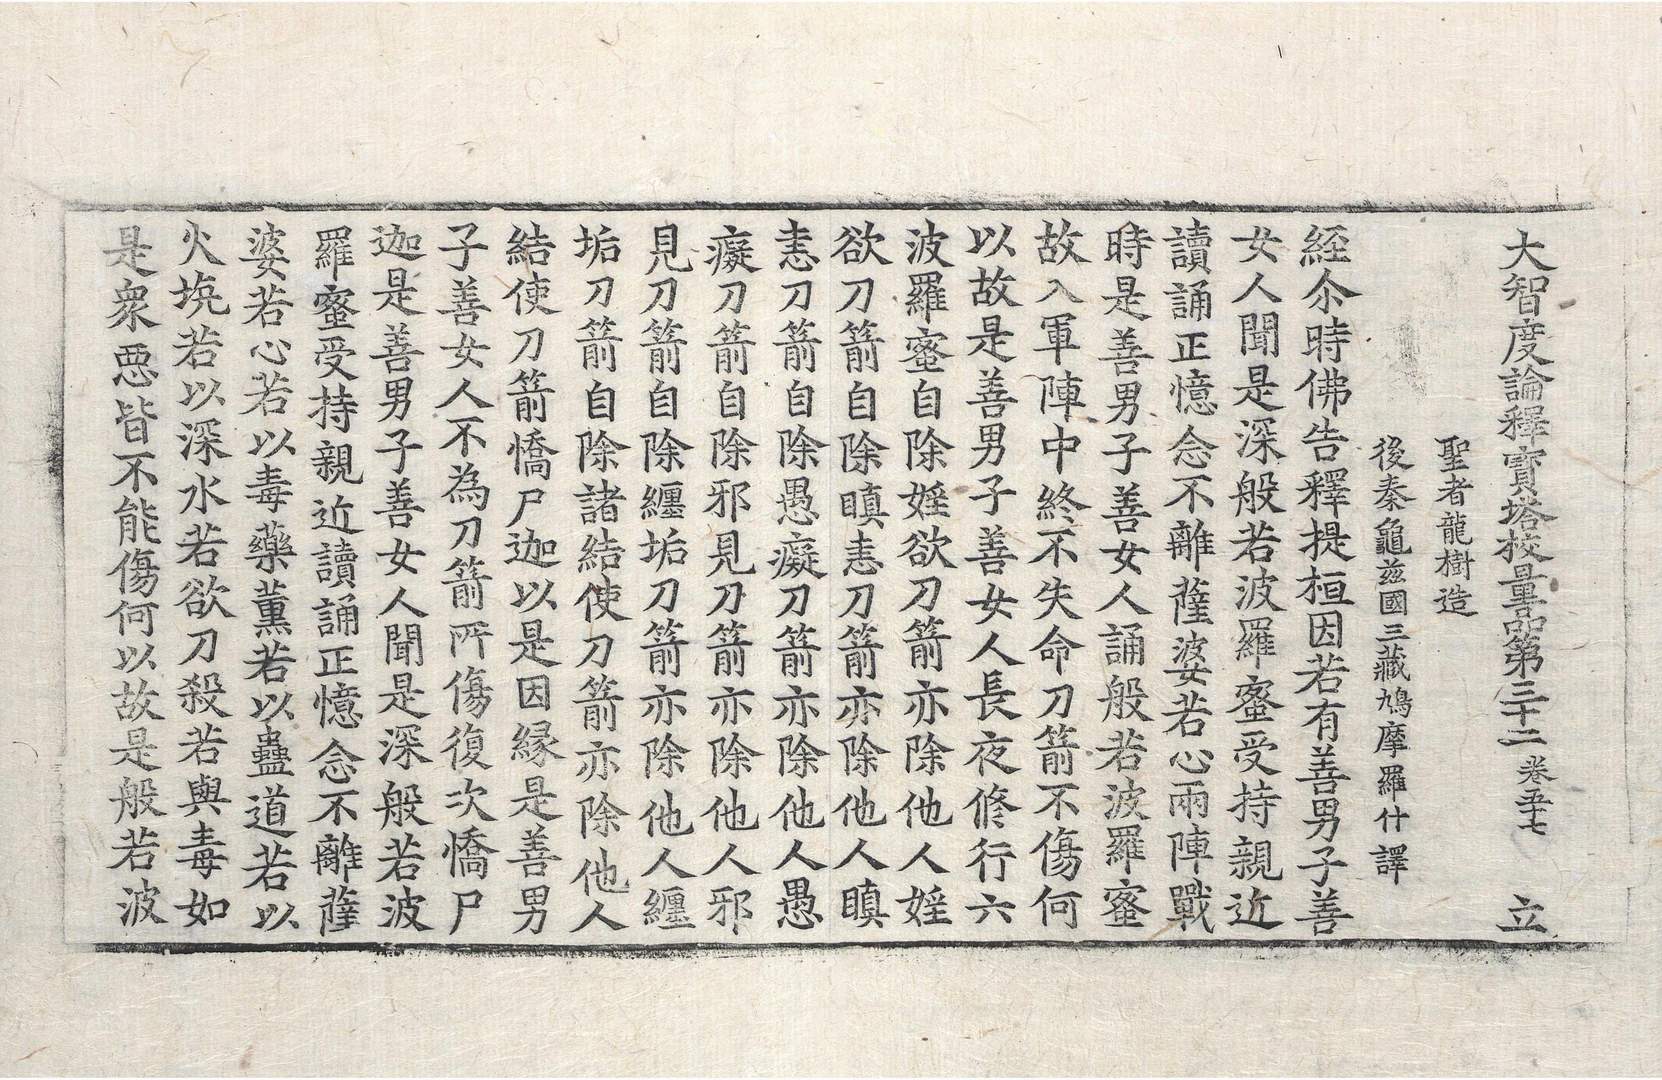 大智度論釋寶塔校量品第三十二 卷五十七 立
聖者龍樹造
後秦龜茲國三藏鳩摩羅什譯
経尒時佛告釋提桓因若有善男子善
女人聞是深般若波羅蜜受持親近
讀誦正憶念不離薩婆若心兩陣戰
時是善男子善女人誦般若波羅蜜
故入軍陣中終不失命刀箭不傷何
以故是善男子善女人長夜修行六
波羅蜜自除婬欲刀箭亦除他人婬
欲刀箭自除瞋恚刀箭亦除他人瞋
恚刀箭自除愚癡刀箭亦除他人愚
癡刀箭自除邪見刀箭亦除他人邪
見刀箭自除纏垢刀箭亦除他人纏
垢刀箭自除諸結使刀箭亦除他人
結使刀箭憍尸迦以是因縁是善男
子善女人不為刀箭所傷復次憍尸
迦是善男子善女人聞是深般若波
羅蜜受持親近讀誦正憶念不離薩
婆若心若以毒藥薰若以蠱道若以
火坑若以深水若欲刀殺若與毒如
是衆惡皆不能傷何以故是般若波